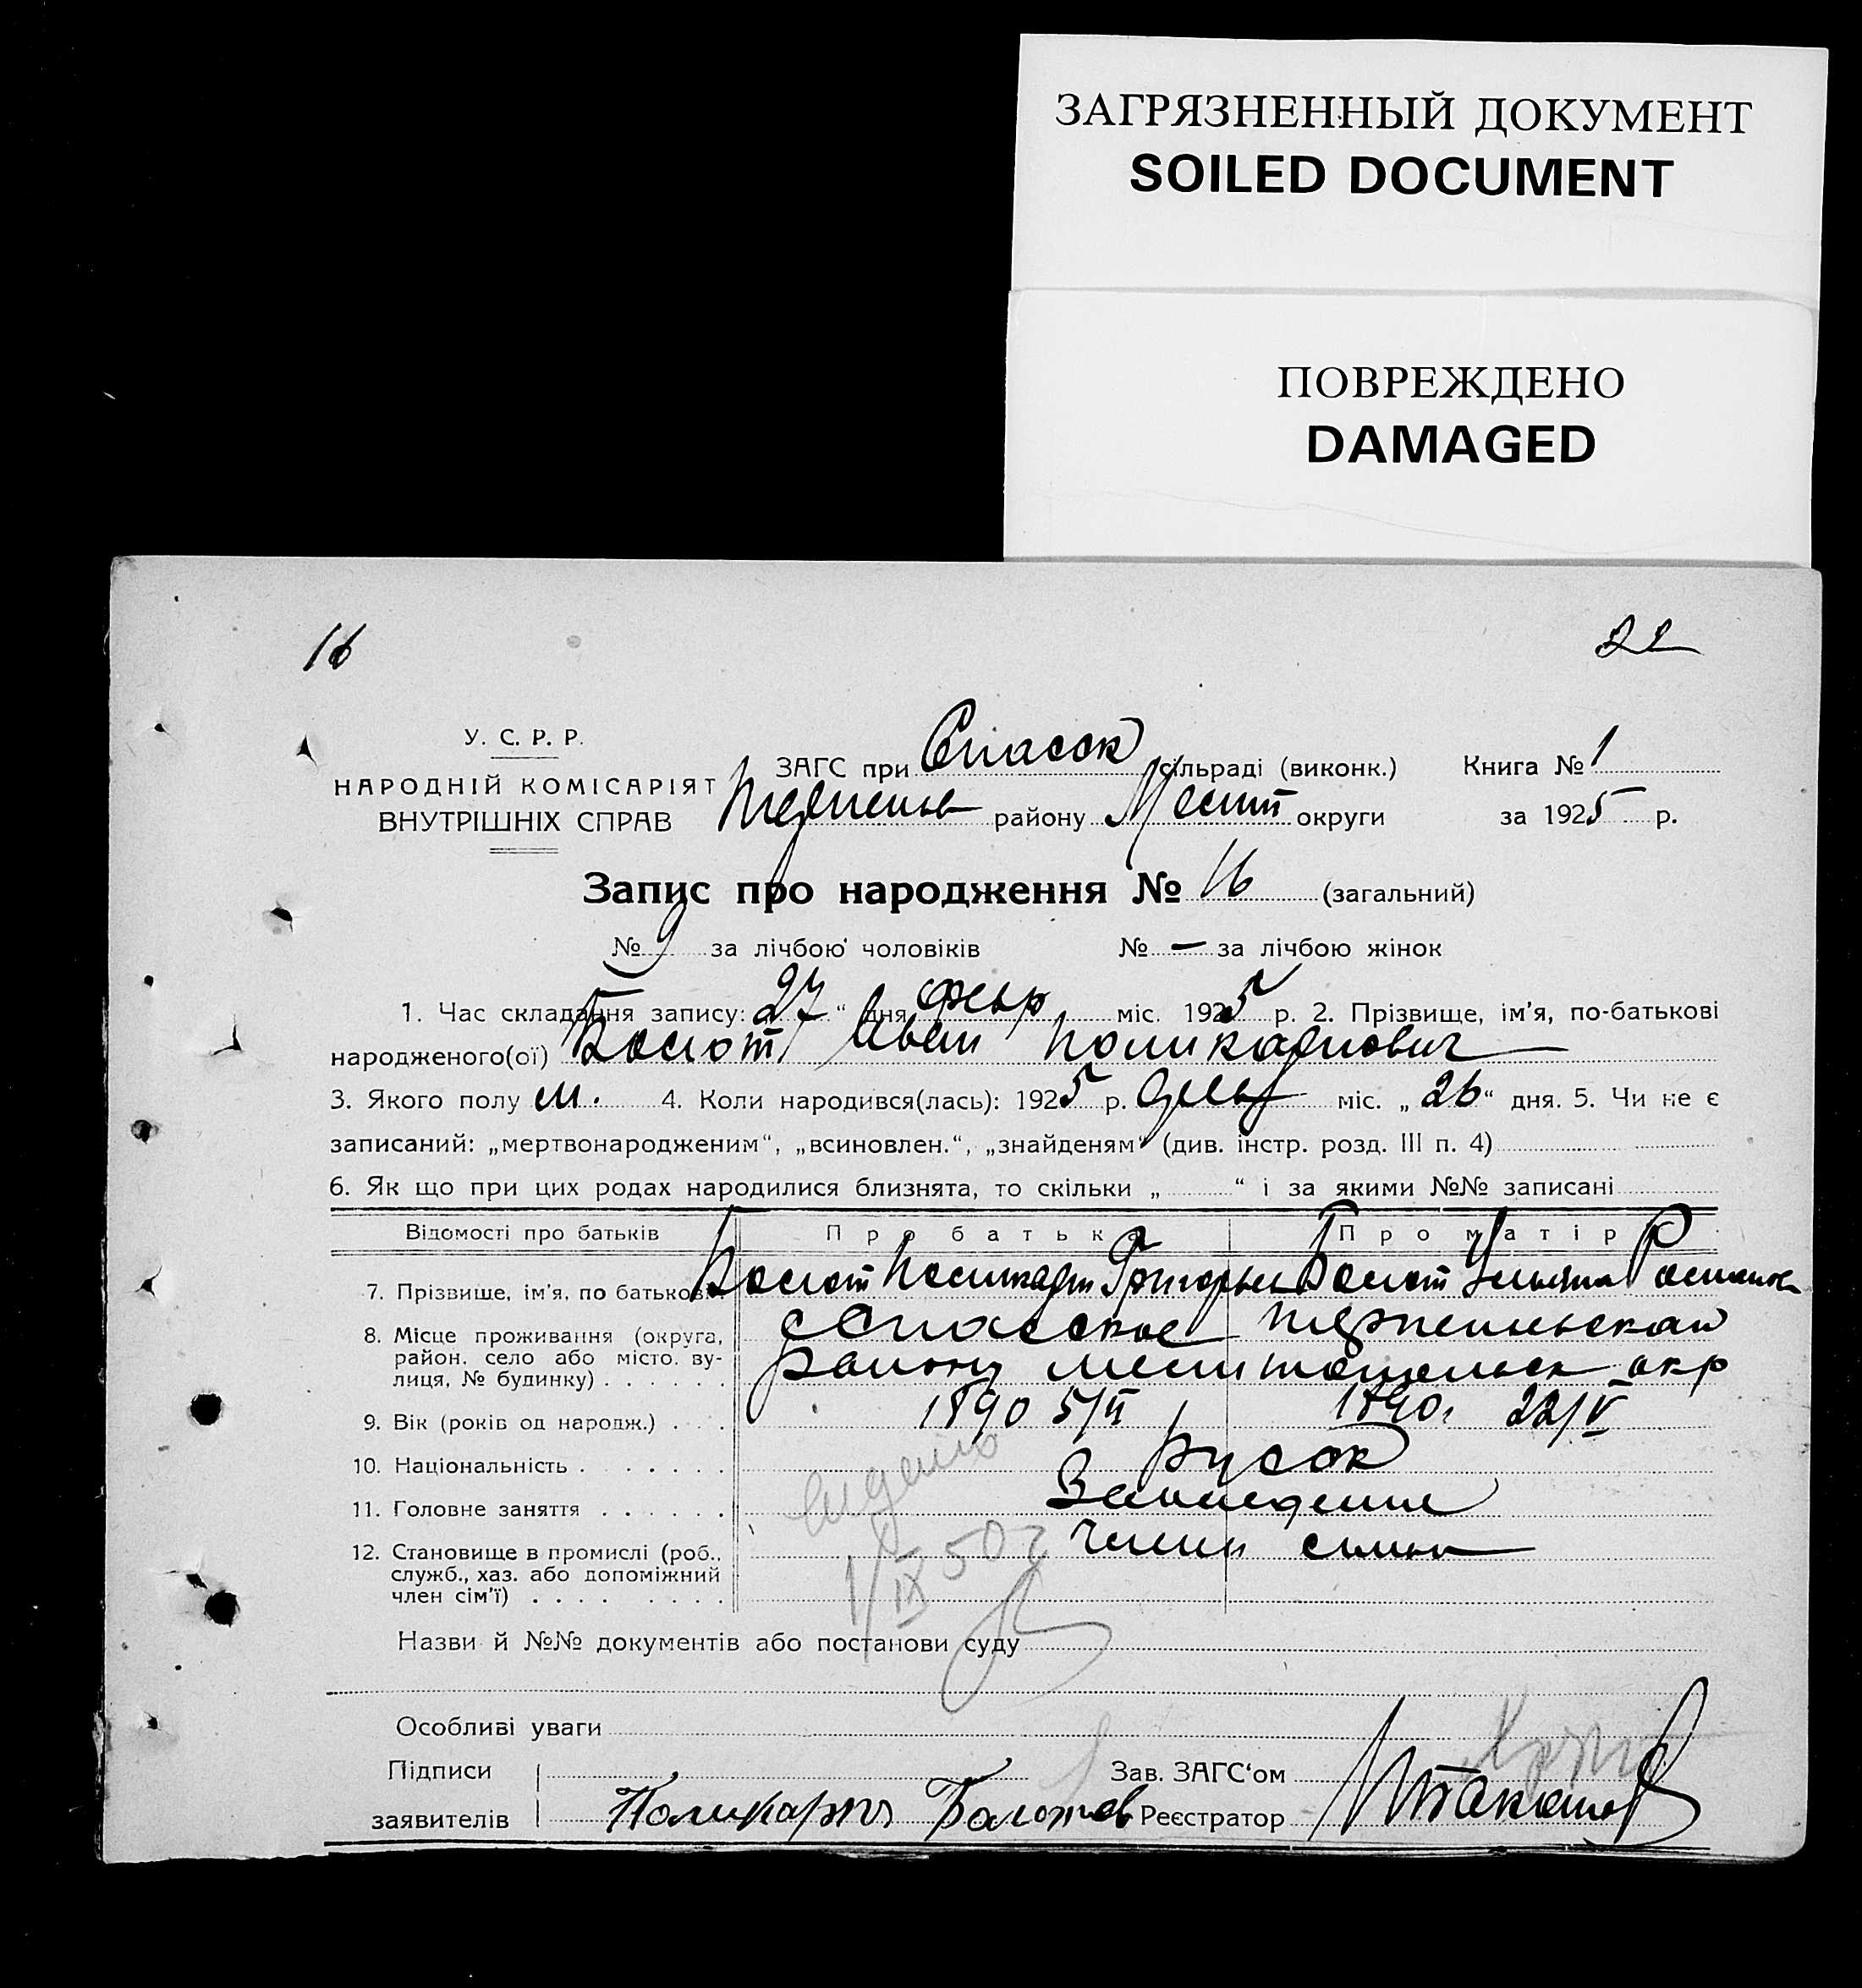 ЗАГРЯЗНЕННЫЙ ДОКУМЕНТ
SOILED DOCUMENT
ПОВРЕЖДЕНО
DAMAGED
16 22
У. С. Р. Р.
НАРОДНІЙ КОМІСАРІЯТ
ВНУТРІШНІХ СПРАВ
ЗАГС при Спасск сільраді (виконк.) Книга № 1
району округи за 1925 р.
Запис про народження № 16 (загальний)
№ 9 за лічбою чоловіків № — за лічбою жінок
1. Час складання запису: 27 “ дня февр міс. 1925 р. 2. Прізвище, ім'я, по-батькові
народженого(ої) Болот Иван Поликарпович
3. Якого полу м. 4. Коли народився(лась): 1925 р. февр міс. „ 26 “ дня. 5. Чи не є
записаний: „мертвонародженим“, „всиновлен.“, „знайденям“ (див. інстр. розд. III п. 4)
6. Як що при цих родах народилися близнята, то скільки „ “ і за якими №№ записані
Відомості про батьків Про батька Про матір
7. Прізвище, ім'я, по батькові Болот Поликарп Григорьев Болот Ульяна
8. Місце проживання (округа, район, село або місто, вулиця, № будинку) Спасское
району мелитопольск окр
9. Вік (років од народж.) 1890 5/II 1890 г 22/V
10. Національність русск
11. Головне заняття Земледелие
12. Становище в промислі (роб., служб., хаз. або допоміжний член сім'ї) члены семьи
1/IX 50 г
Назви й №№ документів або постанови суду
Особливі уваги
Підписи Зав. ЗАГС'ом
заявителів Поликарп Реєстратор